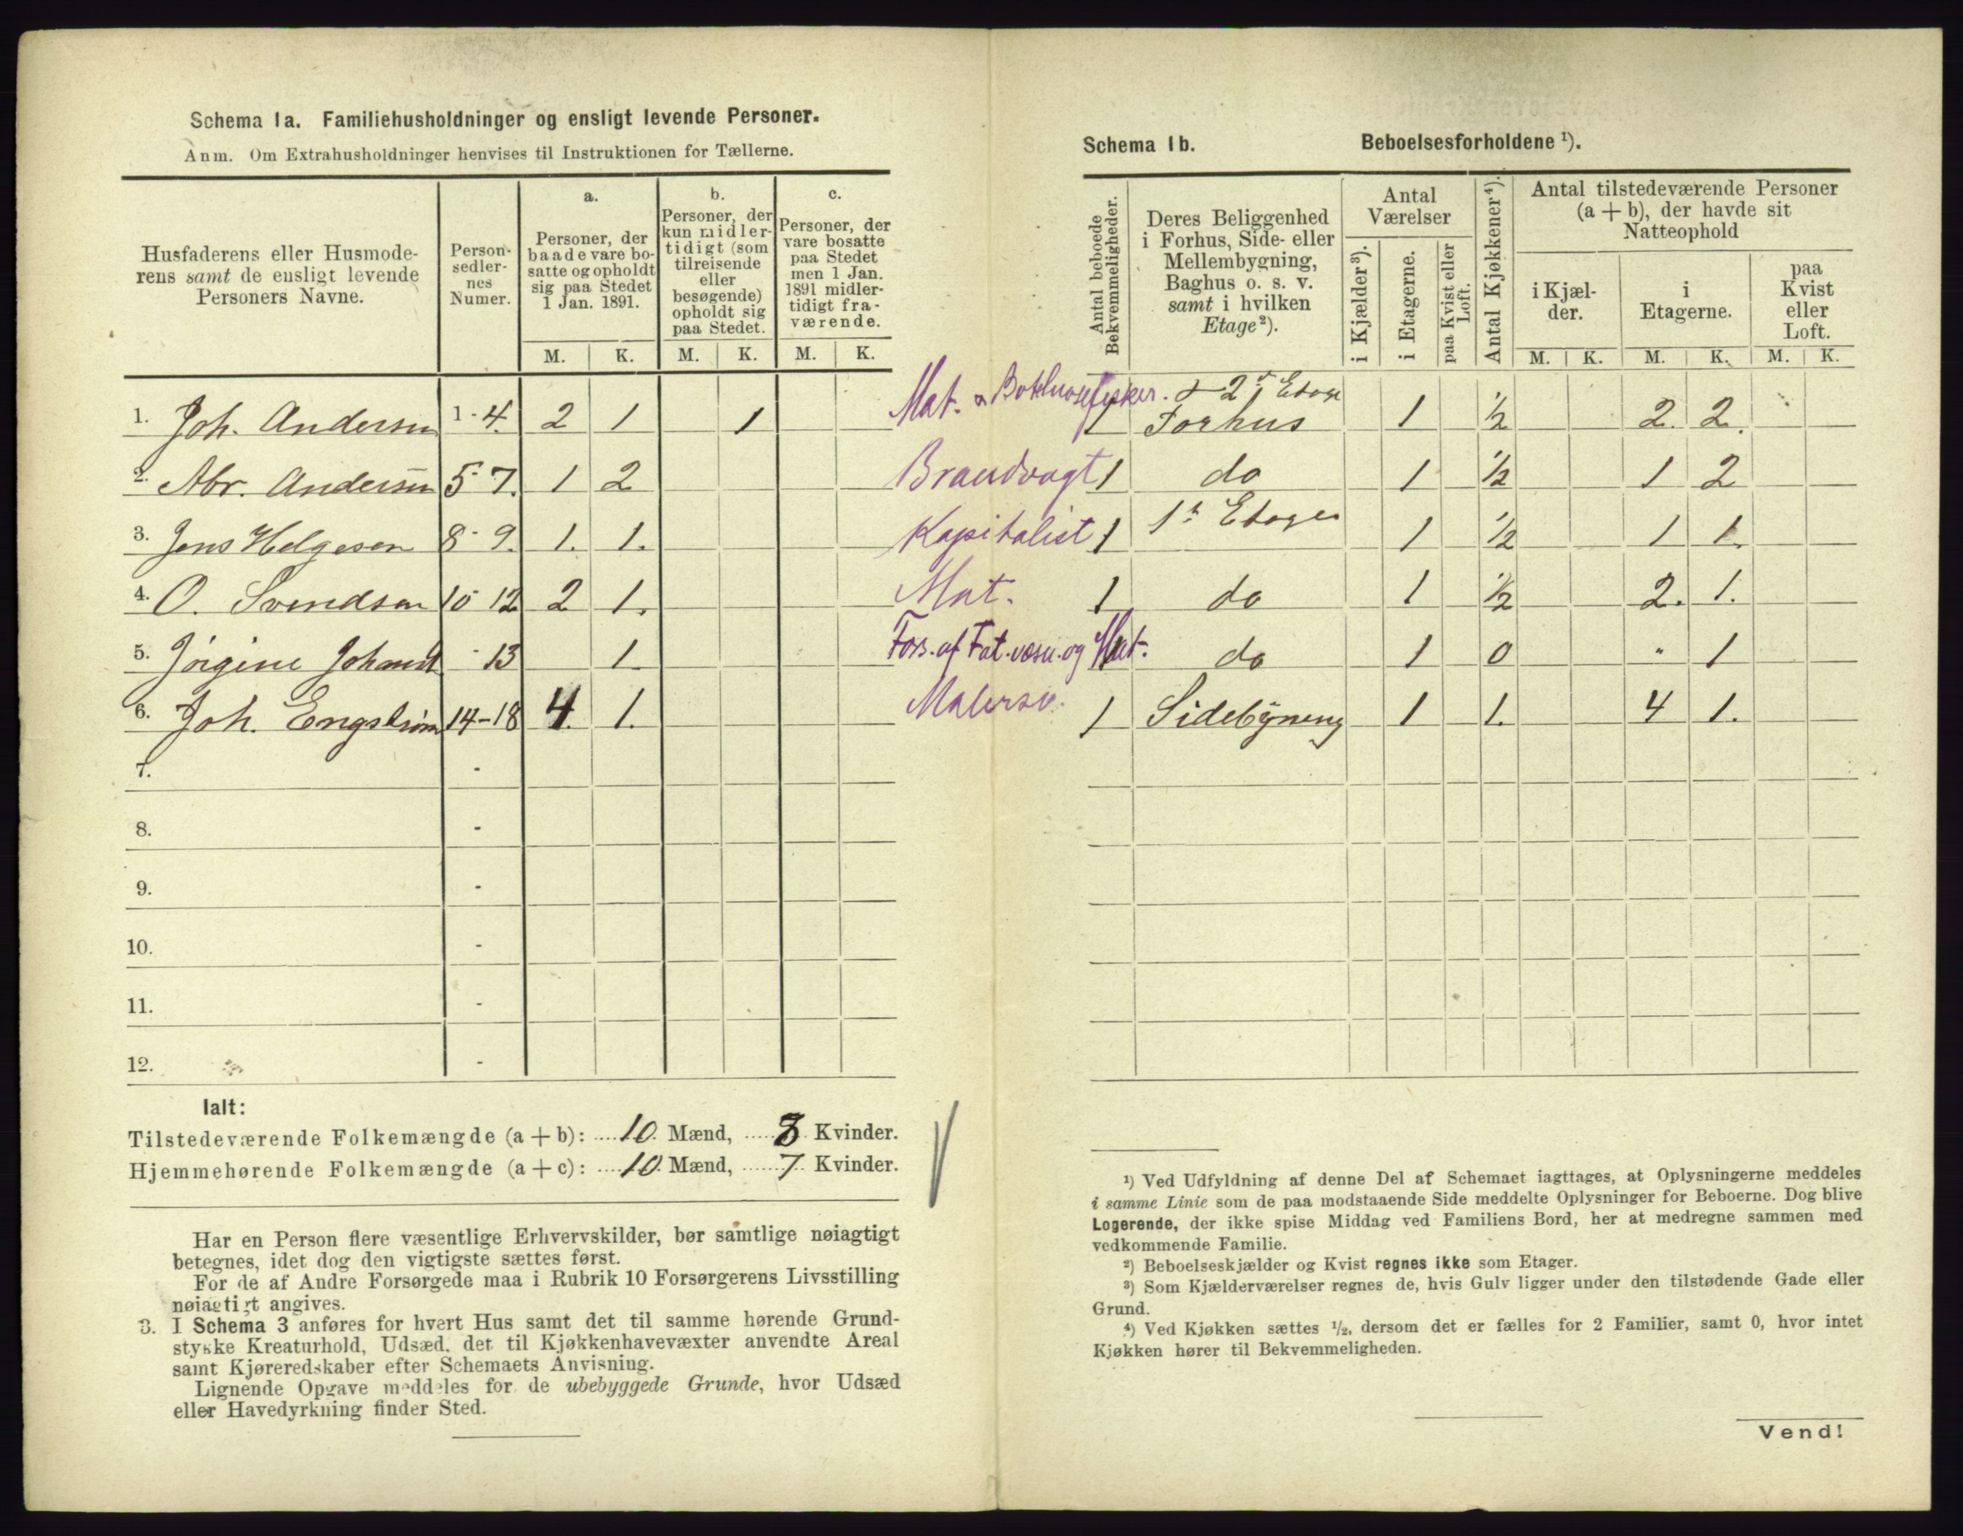 Schema 1a. Familiehusholdninger og ensligt levende Personer.
Anm. Om Extrahusholdninger henvises til Instruktionen for Tællerne.
Husfaderens eller Husmoderens samt de ensligt levende Personers Navne.
Personsedlernes Numer.
a.
Personer, der baade vare bosatte og opholdt sig paa Stedet 1 Jan. 1891.
b.
Personer, der kun midlertidigt (som tilreisende eller besøgende) opholdt sig paa Stedet.
c.
Personer, der vare bosatte paa Stedet men 1 Jan. 1891 midlertidigt fraværende.
M. K. M. K. M. K.
1. Joh. Andersen 1-4. 2 1 1
2. Abr. Andersen 5-7. 1 2
3. Jens Helgesen 8-9. 1. 1.
4. O. Svendsen 10-12 2 1.
5. Jörgine Johansd -13 1.
6. Joh. Engström 14-18 4. 1.
7. -
8. -
9. -
10. -
11. -
12. -
Ialt:
Tilstedeværende Folkemængde (a + b): 10. Mænd, 8 Kvinder.
Hjemmehørende Folkemængde (a + c): 10. Mænd, 7 Kvinder.
Har en Person flere væsentlige Erhvervskilder, bør samtlige nøiagtigt
betegnes, idet dog den vigtigste sættes først.
For de af Andre Forsørgede maa i Rubrik 10 Forsørgerens Livsstilling
nøiagtigt angives.
3. I Schema 3 anføres for hvert Hus samt det til samme hørende Grund-
stykke Kreaturhold, Udsæd, det til Kjøkkenhavevæxter anvendte Areal
samt Kjøreredskaber efter Schemaets Anvisning.
Lignende Opgave meddeles for de ubebyggede Grunde, hvor Udsæd
eller Havedyrkning finder Sted.
Schema 1b. Beboelsesforholdene ¹).
Antal beboede Bekvemmeligheder.
Deres Beliggenhed i Forhus, Side- eller Mellembygning, Baghus o. s. v. samt i hvilken Etage²).
Antal Værelser
i Kjælder³).
i Etagerne.
paa Kvist eller Loft.
Antal Kjøkkener⁴).
Antal tilstedeværende Personer (a + b), der havde sit Natteophold
i Kjælder.
i Etagerne.
paa Kvist eller Loft.
M. K. M. K. M. K.
Mat. 1 2 Etage Forhus 1 ½ 2. 2.
Brandvagt 1 do 1 ½ 1 2
Kapitalist 1 1 Etage 1 ½ 1 1.
Mat. 1 do 1 ½ 2. 1.
Fors. af Fat.væsn. og Mat. 1 do 1 0 " 1
Malersv. 1 Sidebÿning 1 1. 4 1.
¹) Ved Udfyldning af denne Del af Schemaet iagttages, at Oplysningerne meddeles
i samme Linie som de paa modstaaende Side meddelte Oplysninger for Beboerne. Dog blive
Logerende, der ikke spise Middag ved Familiens Bord, her at medregne sammen med
vedkommende Familie.
²) Beboelseskjælder og Kvist regnes ikke som Etager.
³) Som Kjælderværelser regnes de, hvis Gulv ligger under den tilstødende Gade eller
Grund.
⁴) Ved Kjøkken sættes ½, dersom det er fælles for 2 Familier, samt 0, hvor intet
Kjøkken hører til Bekvemmeligheden.
Vend!